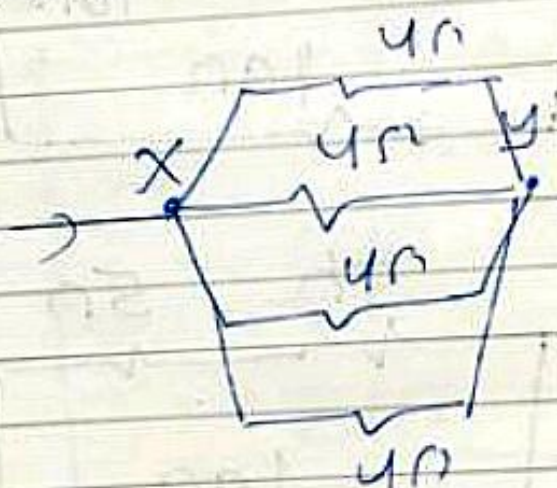 4Ω
4Ω
X
y
4Ω
4Ω